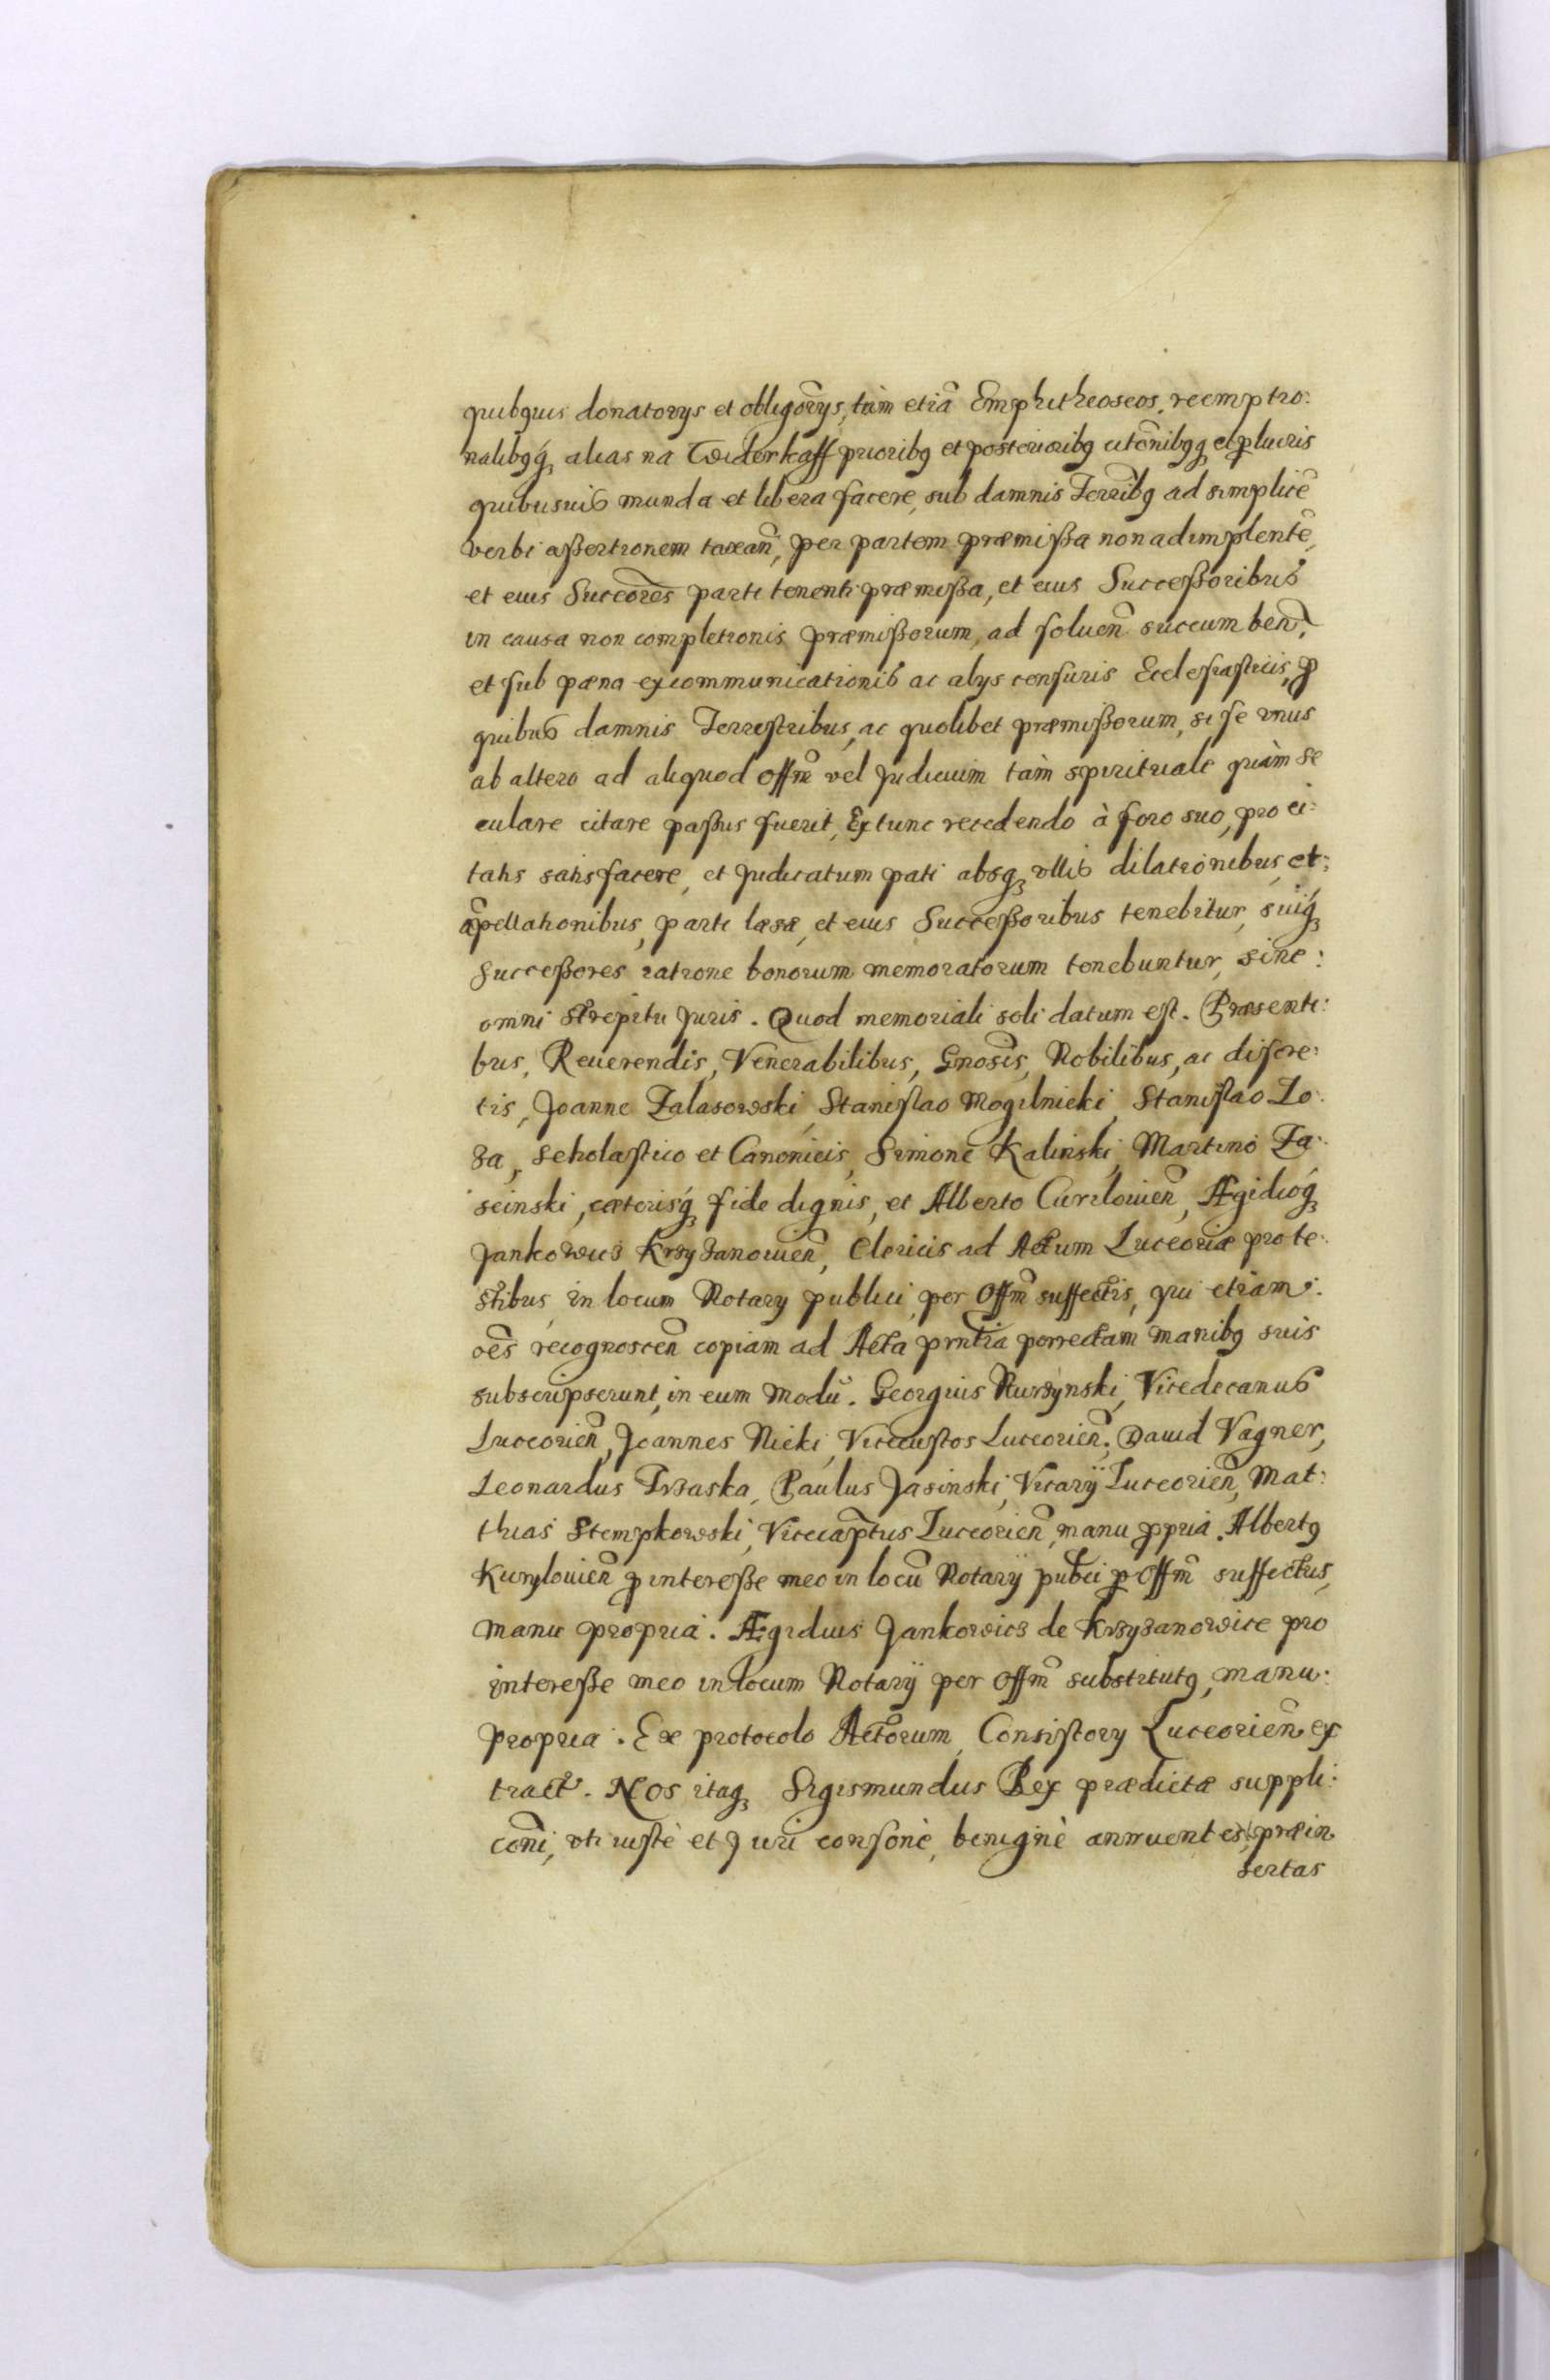 quibquis donatorys et obligõrys, tùm etiã Emphitheoseos, reemptio:
nalibqq́ꝫ alias na Widerkaff prioribꝯ et posterioribꝯ citõnibꝯqꝫ et ꝑlucris
quibusuis munda et libera facere, sub damnis Terribꝯ ad simplicẽ
verbi aßertionem taxañ, per partem præmißa non adimplentẽ,
et eius Succores̃ parti tenenti præmißa, et eius Successoribus
in causa non completionis præmißorum, ad soluen̄ succumben̄,
et sub pæna excommunicationis ac alys censuris Ecclesiasticis, ꝓ
quibus damnis Terrestribus, ac quolibet præmißorum, si se vnus
ab altero ad aliquod Offm̃ vel Judicium tàm spirituale quàm se
culare citare paßus fuerit, Extunc recedendo à foro suo, pro ci:
tatis satisfacere, et Judicatum pati absqꝫ vllis dilationibus, et:
ãpellationibus, parti læsæ, et eius Succeßoribus tenebitur, suiq́ꝫ
Succeßores ratione bonorum memoratorum tenebuntur, sine:
omni strepitu Juris. Quod memoriali soli datum est. Præsenti:
bus, Reuerendis, Venerabilibus, Gnosis̃, Nobilibus, ac discre:
tis, Joanne Zalasowski, Stanislao Mogilnicki, Stanislao Lo:
za, Scholastico et Canonicis, Simone Kalinski, Martino Za:
scinski, cæterisq́ꝫ fide dignis, et Alberto Curilouien̄, Ægidioq́ꝫ
Jankowicz Krzyzanouien̄, Clericis ad Actum Luceoriæ pro te:
stibus, in locum Notary publici, per Offm̃ suffectis, qui etiam:
oẽs recognoscen̄ copiam ad Acta prñtia porrectam manibꝯ suis
subscripserunt, in eum modũ. Georgius Rurzynski, Vicedecanus
Luceorien̄, Joannes Nicki, Vicecustos Luceorien̄, Dauid Vagner,
Leonardus Trzaska, Paulus Jasinski, Vicarÿ Luceorien̄, Mat:
thias Stempkowski, Vicecap̃tus Luceorien̄, manu ꝓpria. Albertꝯ
Kurylouien̄ ꝓ intereße meo in locũ Notarÿ pubci ꝑ Offm̃ suffectus,
manu propria. Ægidius Jankowicz de Krzyzanowice pro
intereße meo in locum Notarÿ per Offm̃ substitutꝯ, manu:
propria. Ex protocolo Actorum, Consistory Luceorien̄ ex
tract. Nos itaqꝫ Sigismundus Rex prædictæ suppli:
cõni, vti iustè et Juri consonè, benignè annuentes, præin
sertas